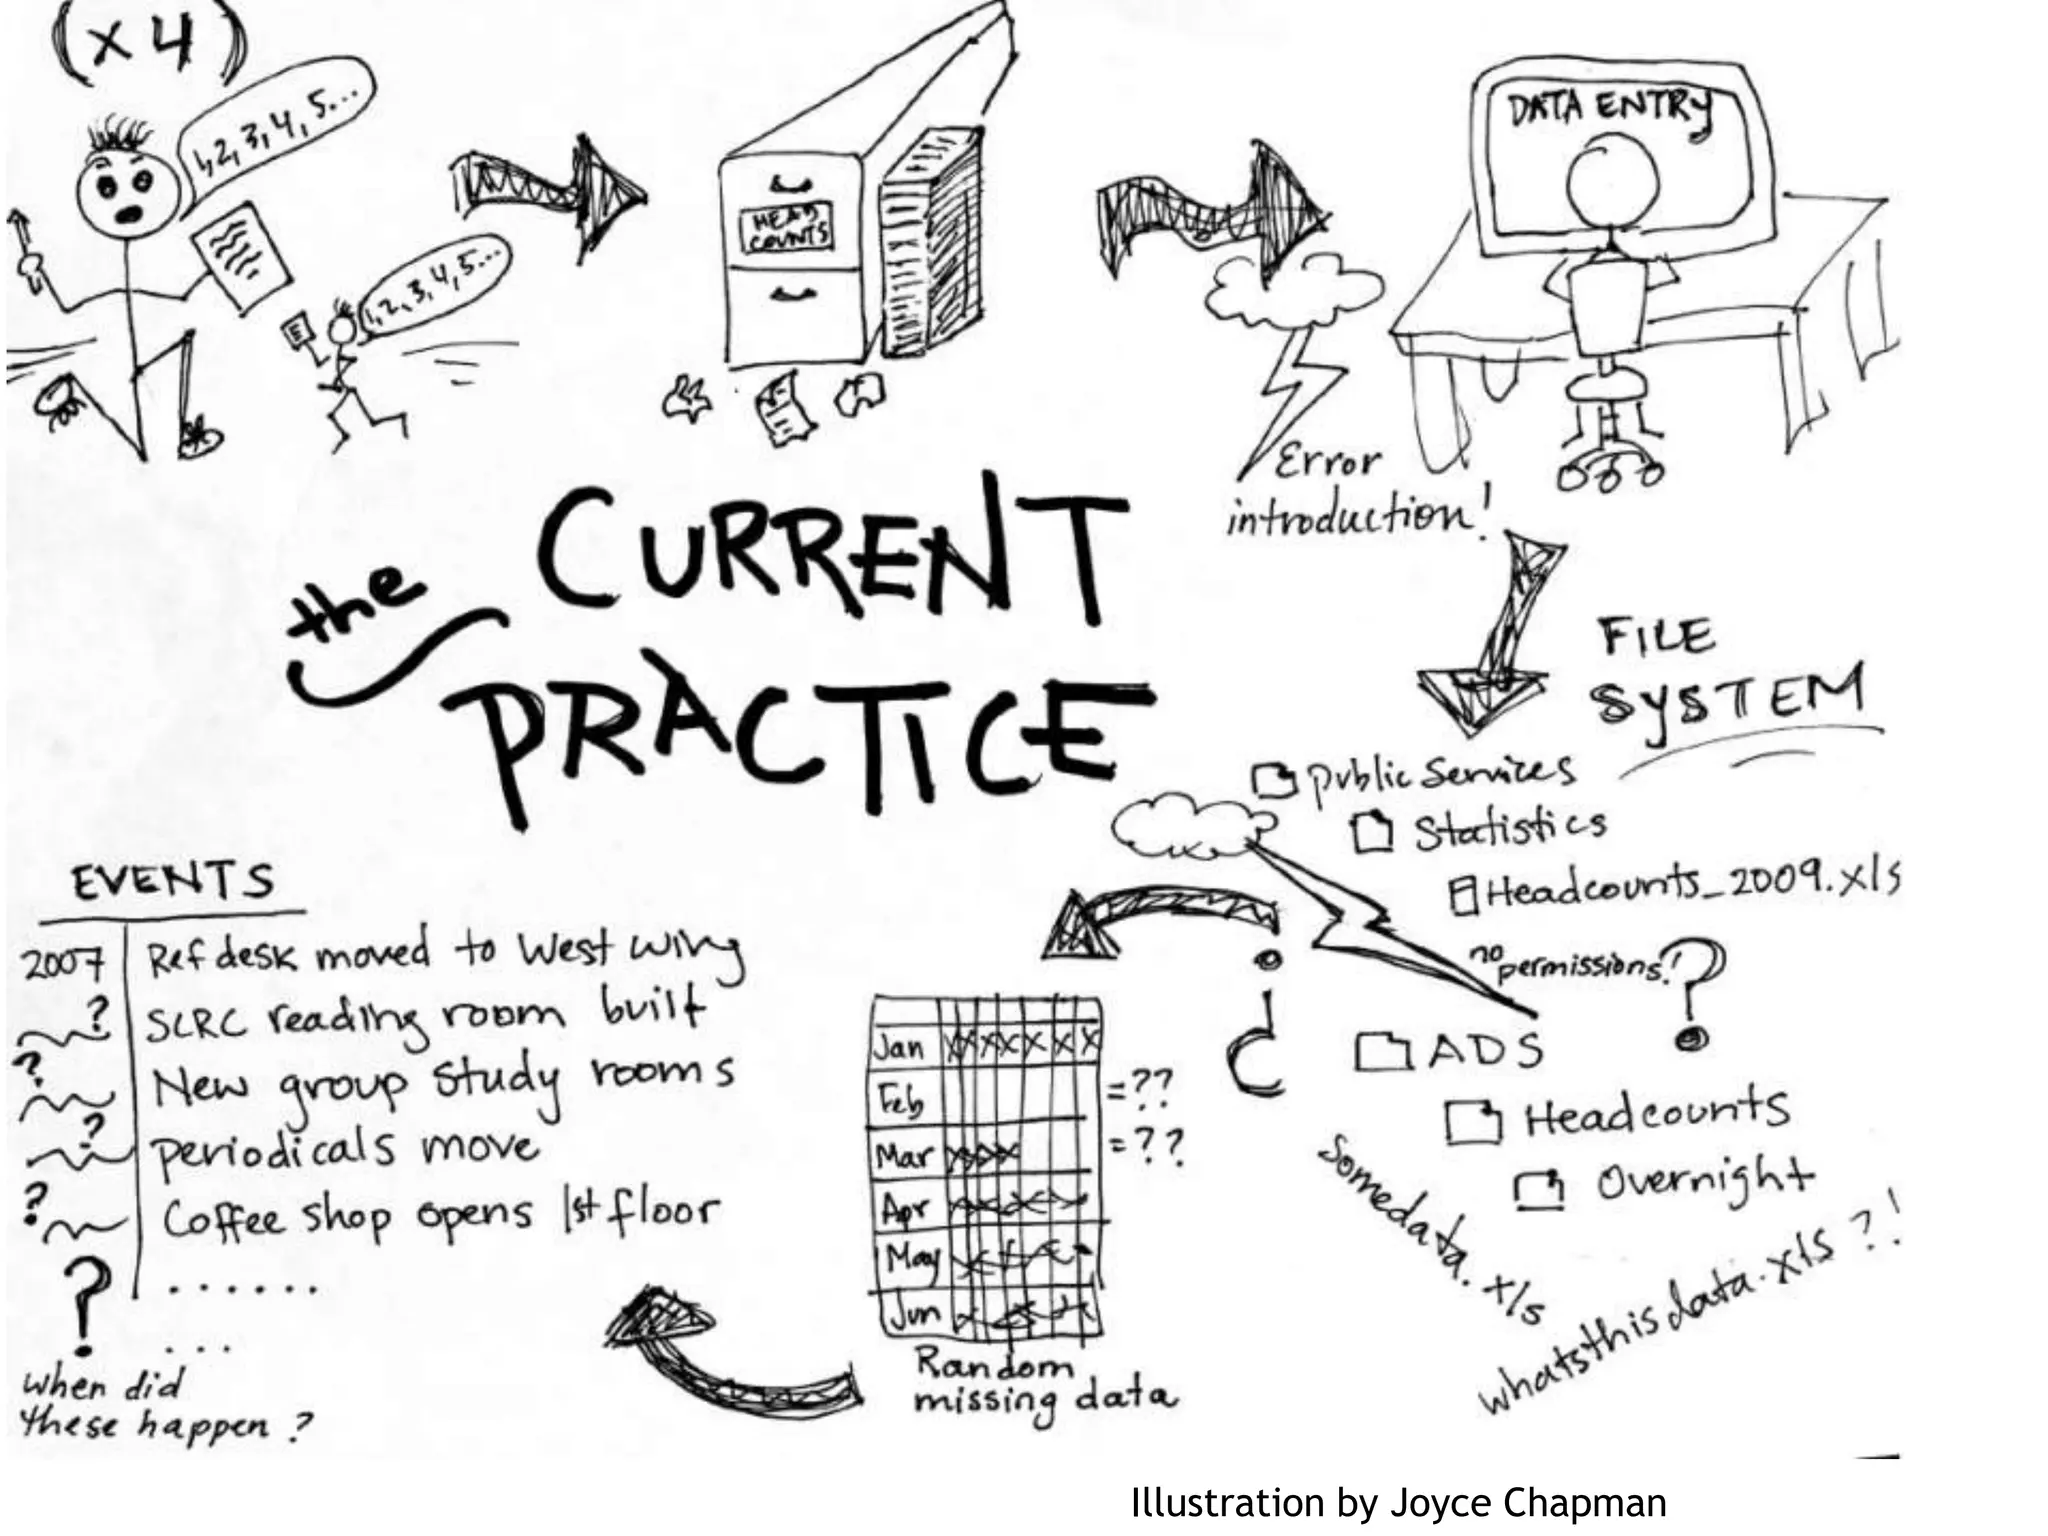 (x 4)
1, 2, 3, 4, 5...
1, 2, 3, 4, 5...
HEAD
COUNTS
DATA ENTRY
Error
introduction!
the
CURRENT
PRACTICE
FILE
SYSTEM
Public Services
Statistics
Headcounts_2009.xls
no
permissions!
?
ADS
Headcounts
Overnight
Somedata.xls
whatsthisdata.xls ?!
Jan XXXXXXX
Feb =??
Mar XXXX =??
Apr
May
Jun
Random
missing data
EVENTS
2007 Ref desk moved to West wing
? SCRC reading room built
? New group study rooms
? periodicals move
? Coffee shop opens 1st floor
? ......
...
When did
these happen?
Illustration by Joyce Chapman